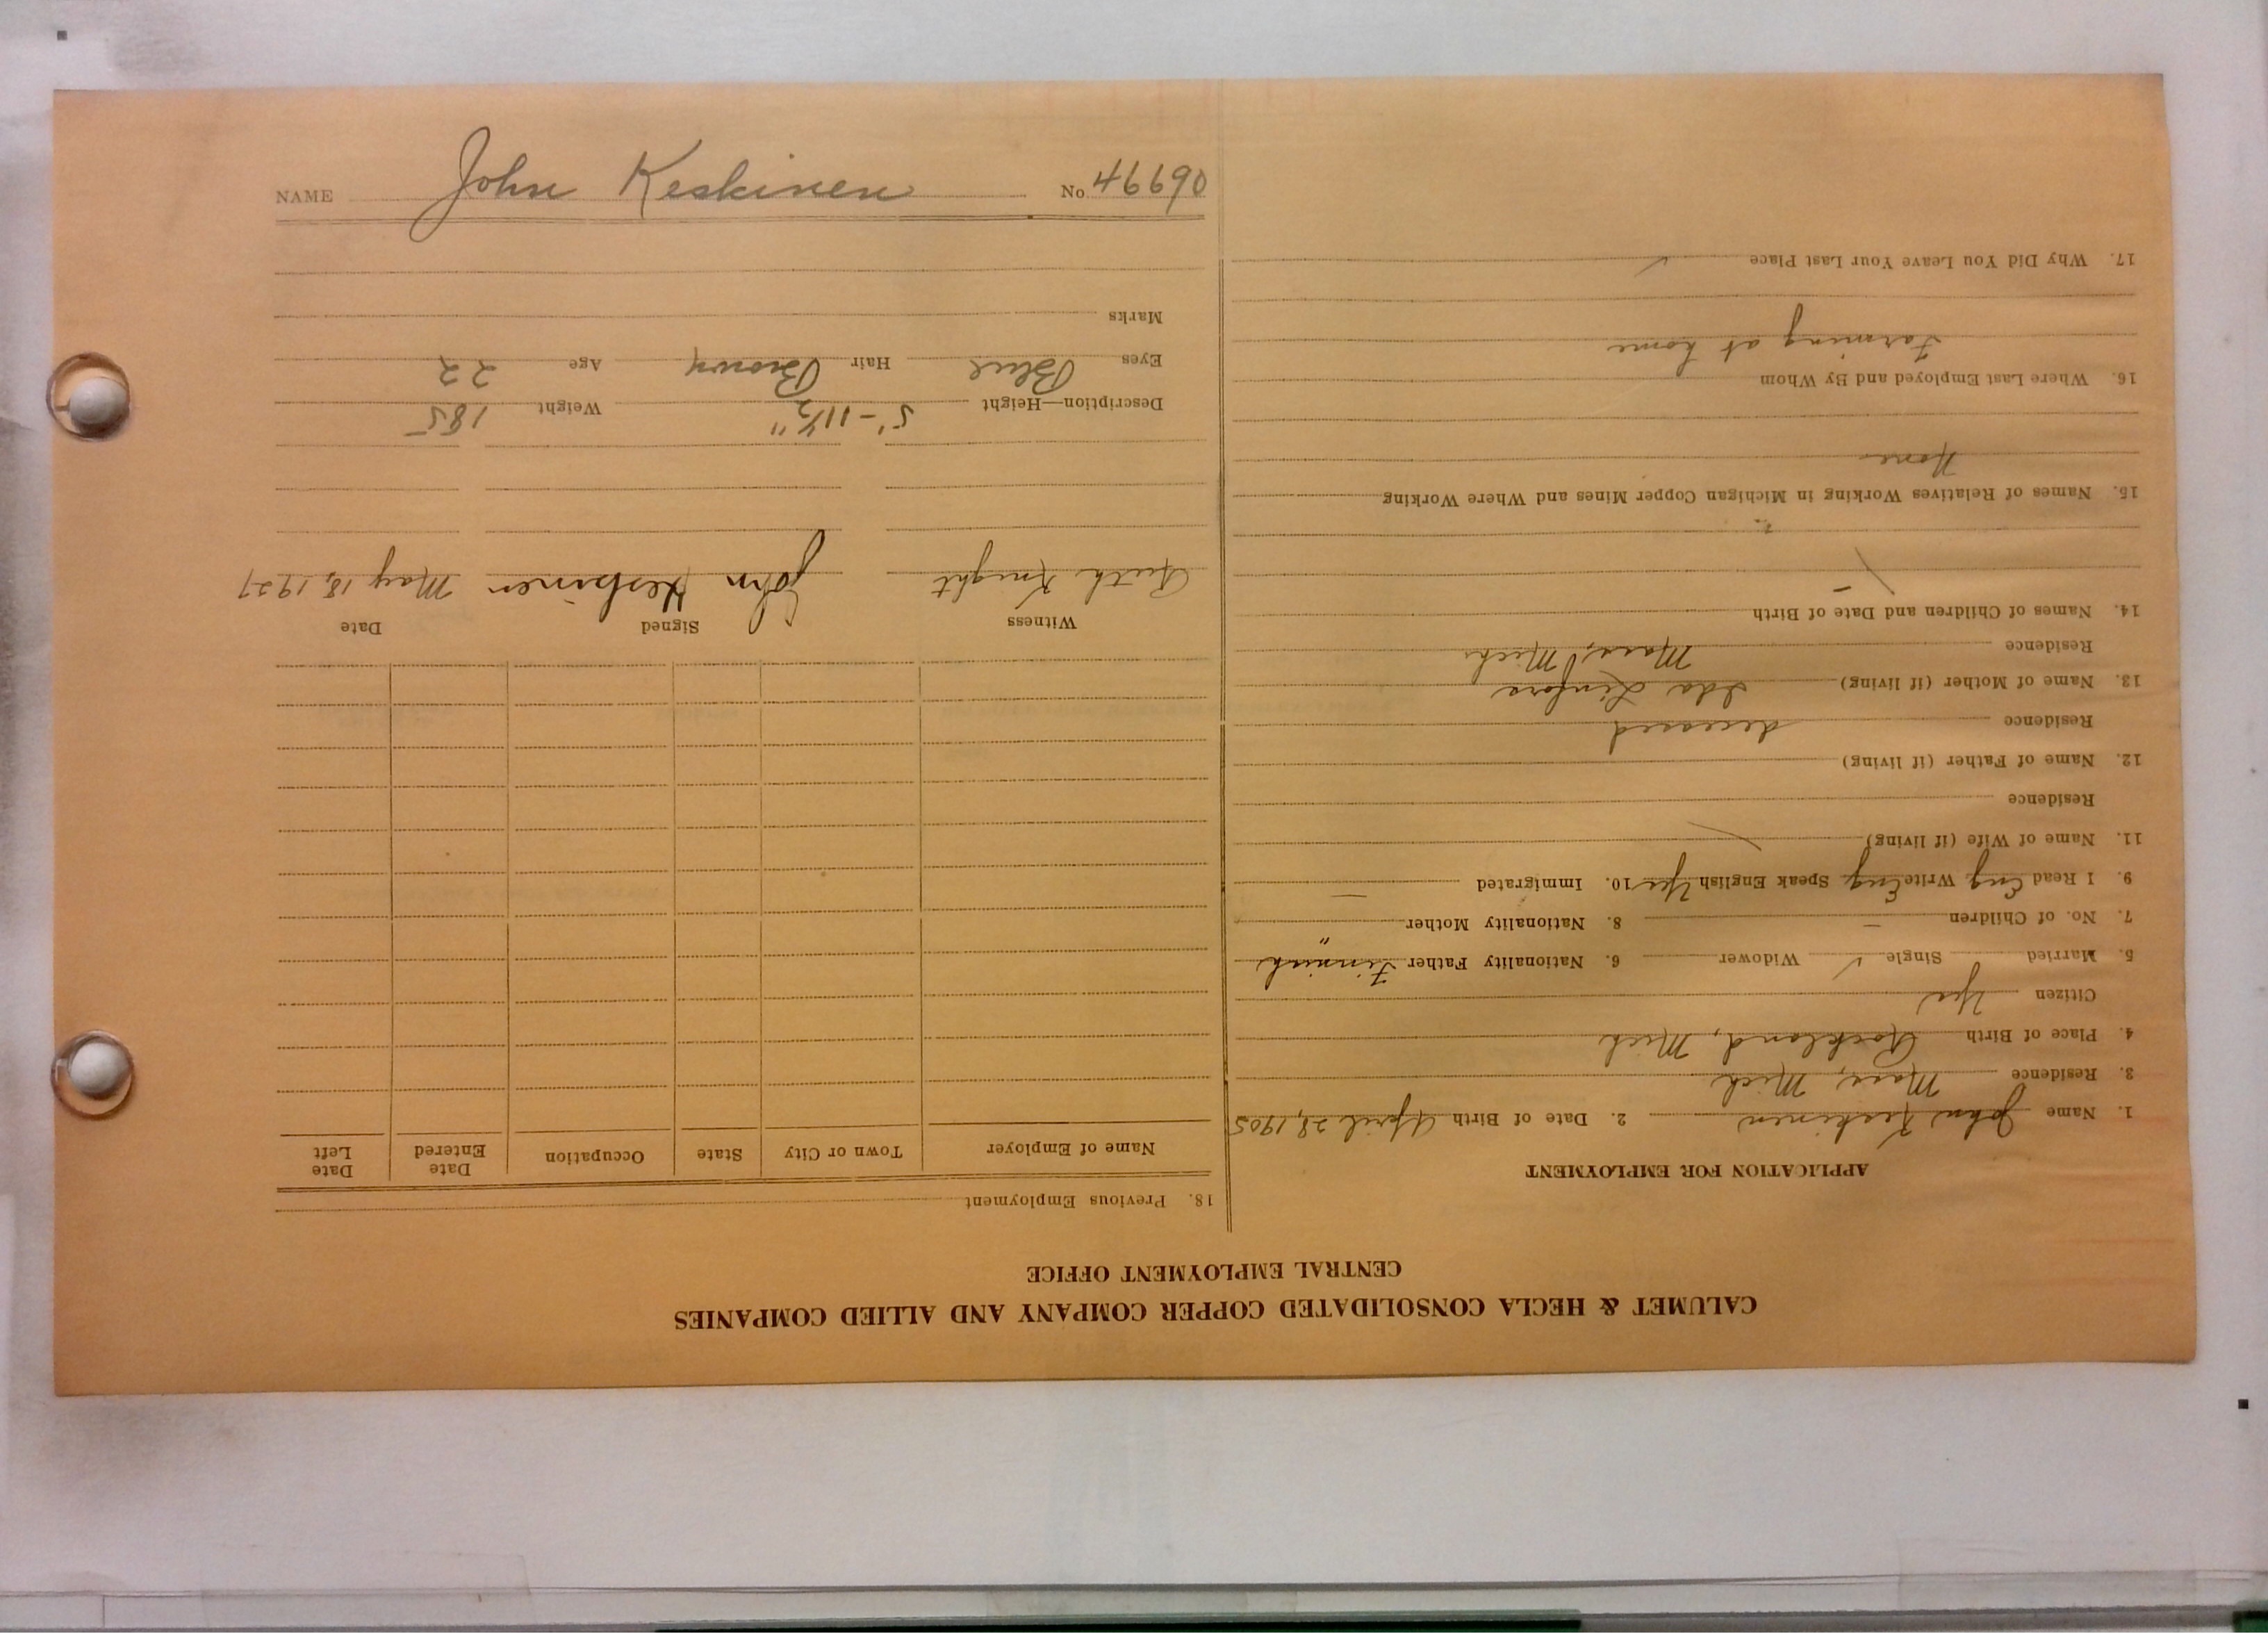 CALUMET & HECLA CONSOLIDATED COPPER COMPANY AND ALLIED COMPANIES
CENTRAL EMPLOYMENT OFFICE
APPLICATION FOR EMPLOYMENT
1. Name John Keskinen 2. Date of Birth April 28, 1905
3. Residence Mass, Mich
4. Place of Birth Rockland, Mich
Citizen Yes
5. Married Single ✓ Widower 6. Nationality Father Finnish
7. No. of Children – 8. Nationality Mother "
9. I Read Eng Write Eng Speak English Yes 10. Immigrated –
11. Name of Wife (if living)
Residence
12. Name of Father (if living)
Residence deceased
13. Name of Mother (if living) Ida Linfors
Residence Mass, Mich
14. Names of Children and Date of Birth –
15. Names of Relatives Working in Michigan Copper Mines and Where Working
None
16. Where Last Employed and By Whom
Farming at home
17. Why Did You Leave Your Last Place ✓
18. Previous Employment
Name of Employer Town or City State Occupation Date Entered Date Left
Witness Signed Date
Ruth Knight John Keskinen May 18, 1927
Description—Height 5'-11½" Weight 185
Eyes Blue Hair Brown Age 22
Marks
NAME John Keskinen No 46690